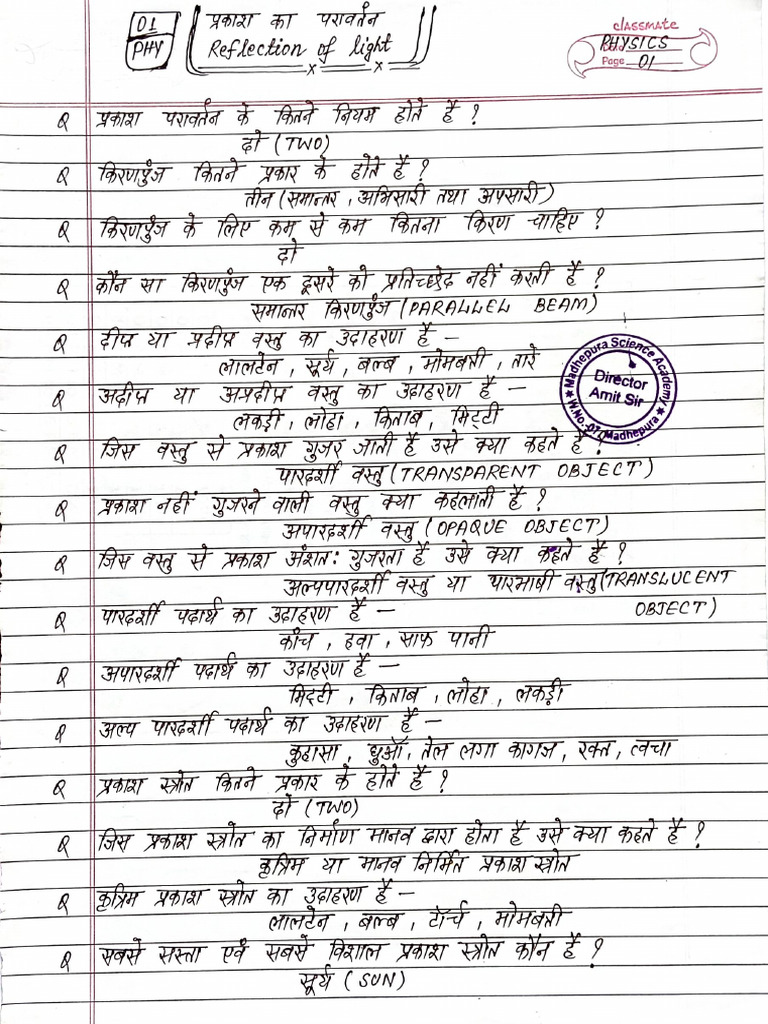 01
PHY
प्रकाश का परावर्तन
Reflection of light
classmate
PHYSICS
Page 01
Q प्रकाश परावर्तन के कितने नियम होते है ?
दो (TWO)
Q किरणपुंज कितने प्रकार के होते है ?
तीन (समान्तर , अभिसारी तथा अपसारी)
Q किरणपुंज के लिए कम से कम कितना किरण चाहिए ?
दो
Q कौन सा किरणपुंज एक दूसरे को प्रतिच्छेद नहीं करती है ?
समान्तर किरणपुंज (PARALLEL BEAM)
Q दीप्त या प्रदीप्त वस्तु का उदाहरण है –
लालटेन , सूर्य , बल्ब , मोमबत्ती , तारे
Q अदीप्त या अप्रदीप्त वस्तु का उदाहरण है –
लकड़ी , लोहा , किताब , मिट्टी
Q जिस वस्तु से प्रकाश गुजर जाती है उसे क्या कहते है ?
पारदर्शी वस्तु (TRANSPARENT OBJECT)
Q प्रकाश नहीं गुजरने वाली वस्तु क्या कहलाती है ?
अपारदर्शी वस्तु (OPAQUE OBJECT)
Q जिस वस्तु से प्रकाश अंशत: गुजरता है उसे क्या कहते है ?
अल्पपारदर्शी वस्तु या पारभाषी वस्तु (TRANSLUCENT
OBJECT)
Q पारदर्शी पदार्थ का उदाहरण है –
काँच , हवा , साफ पानी
Q अपारदर्शी पदार्थ का उदाहरण है –
मिट्टी , किताब , लोहा , लकड़ी
Q अल्प पारदर्शी पदार्थ का उदाहरण है –
कुहासा , धुआँ , तेल लगा कागज , रक्त , त्वचा
Q प्रकाश स्त्रोत कितने प्रकार के होते है ?
दो (TWO)
Q जिस प्रकाश स्त्रोत का निर्माण मानव द्वारा होता है उसे क्या कहते है ?
कृत्रिम या मानव निर्मित प्रकाश स्त्रोत
Q कृत्रिम प्रकाश स्त्रोत का उदाहरण है –
लालटेन , बल्ब , टॉर्च , मोमबत्ती
Q सबसे सस्ता एवं सबसे विशाल प्रकाश स्त्रोत कौन है ?
सूर्य (SUN)
Madhepura Science Academy
Director
Amit Sir
W.No.-07 Madhepura